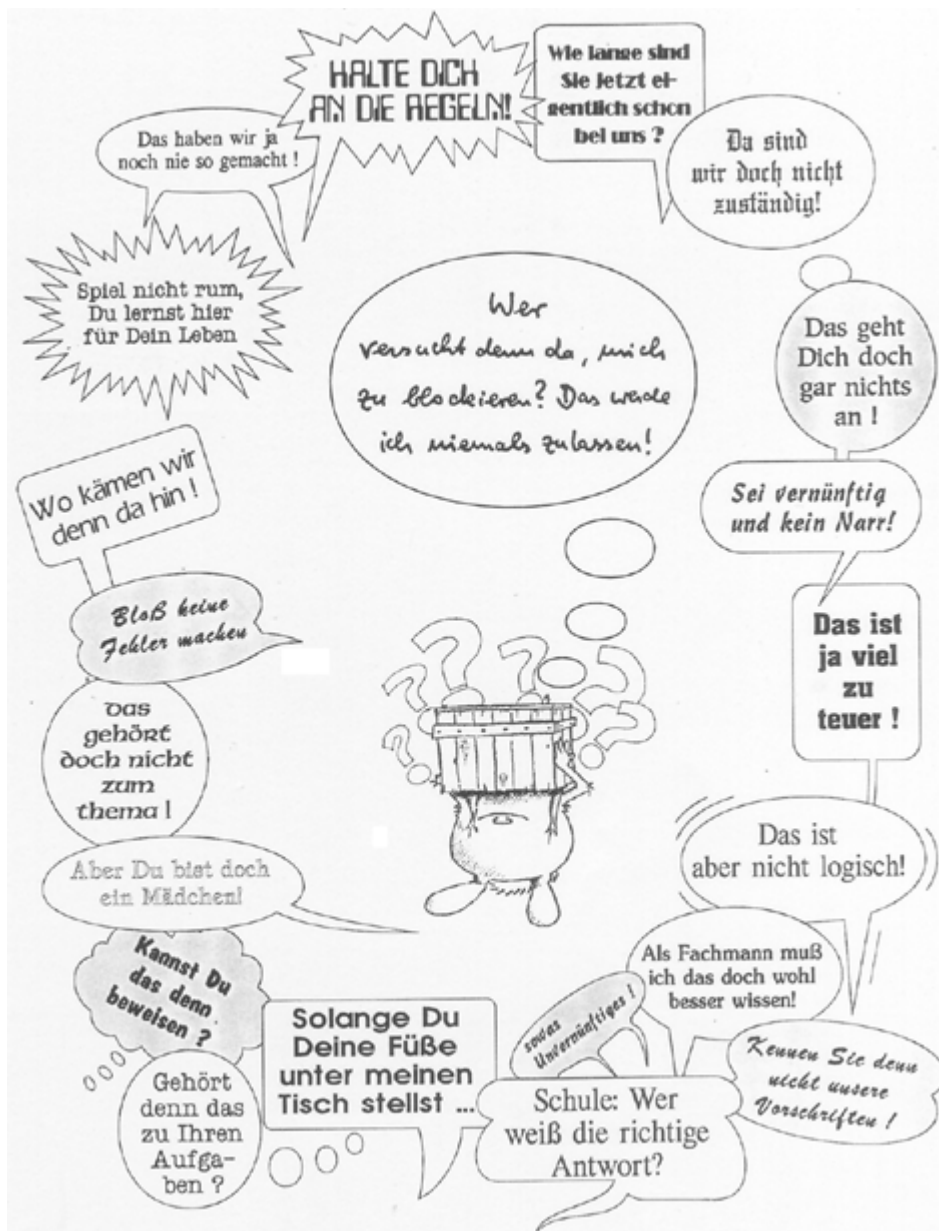 HALTE DICH
AN DIE REGELN!
Wie lange sind
Sie jetzt ei-
gentlich schon
bei uns ?
Da sind
wir doch nicht
zuständig!
Das haben wir ja
noch nie so gemacht !
Spiel nicht rum,
Du lernst hier
für Dein Leben
Wer
versucht denn da, mich
zu blockieren? Das werde
ich niemals zulassen!
Das geht
Dich doch
gar nichts
an !
Sei vernünftig
und kein Narr!
Wo kämen wir
denn da hin !
Bloß keine
Fehler machen
Das ist
ja viel
zu
teuer !
Das
gehört
doch nicht
zum
thema !
Das ist
aber nicht logisch!
Aber Du bist doch
ein Mädchen!
Kannst Du
das denn
beweisen ?
Als Fachmann muß
ich das doch wohl
besser wissen!
sowas
Unvernünftiges !
Solange Du
Deine Füße
unter meinen
Tisch stellst ...
Kennen Sie denn
nicht unsere
Vorschriften !
Gehört
denn das
zu Ihren
Aufga-
ben ?
Schule: Wer
weiß die richtige
Antwort?